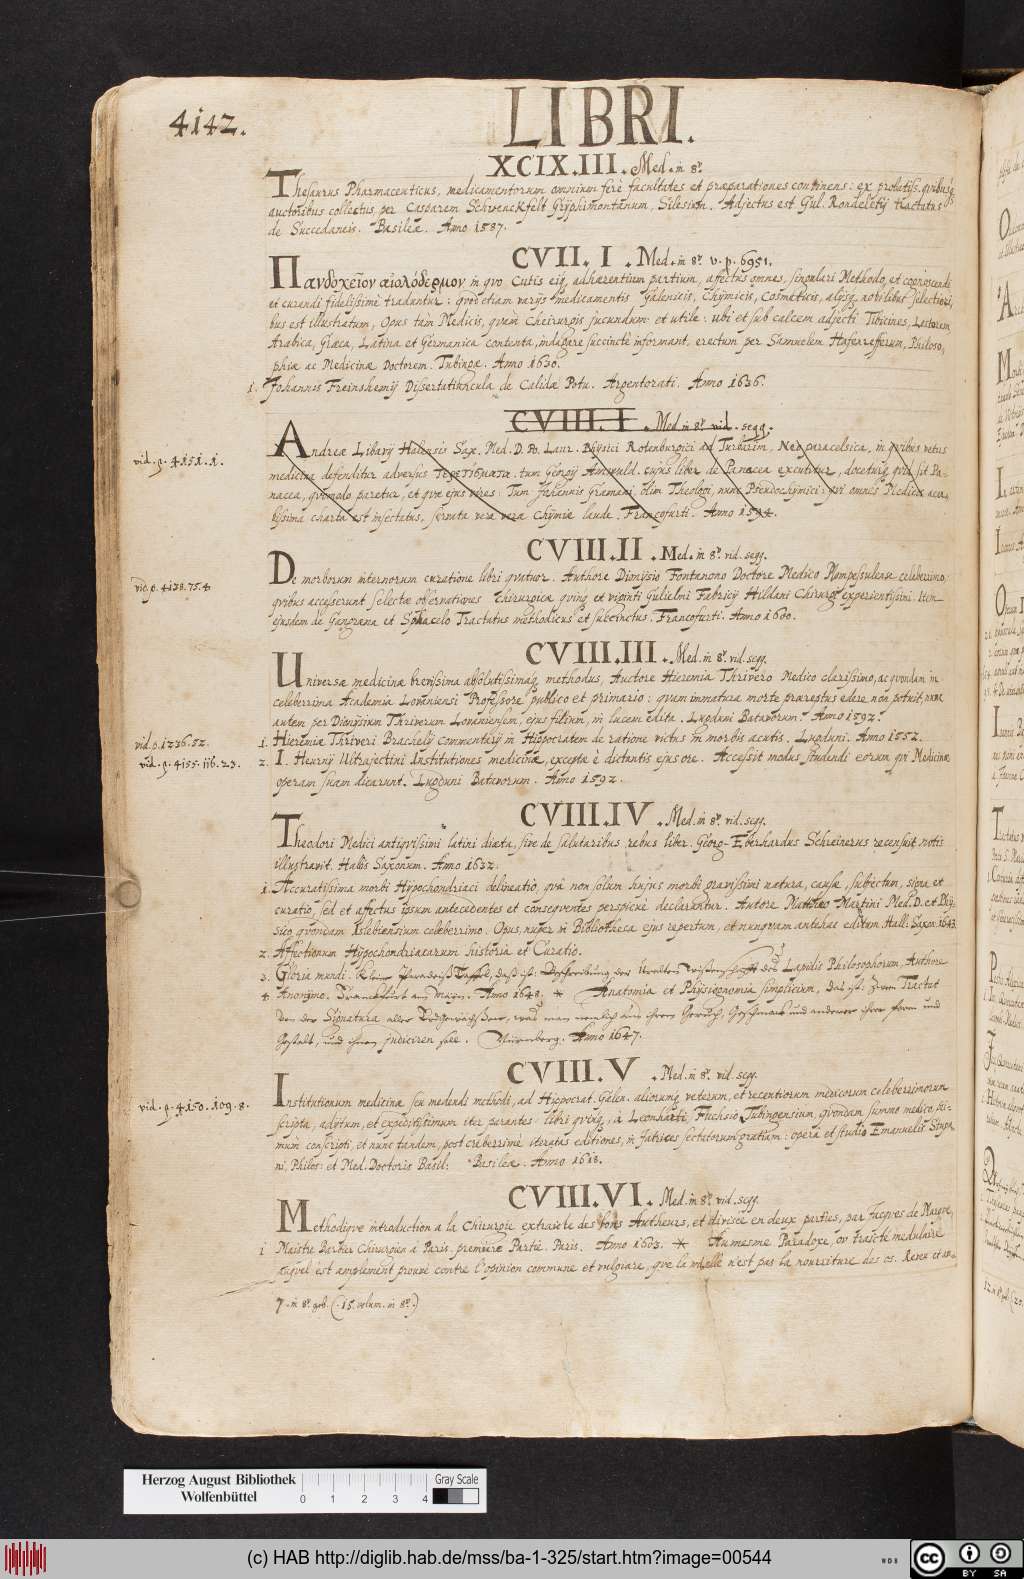 4142.
LIBRI.
XCIX.III. Med. in 8º.
Thesaurus Pharmaceuticus, medicamentorum omnium ferè facultates et præparationes continens: ex probatiss. quibusq
auctoribus collectus per Casparem Schwenckfelt Gryphimontanum, Silesium. Adjectus est Gul. Rondeletij tractatus
de Succedaneis. Basileæ. Anno 1587.
CVII. I. Med. in 8º. v. p. 6951.
Πανδοχεῖον αἰολόδερμον in quo Cutis eiq, adhærentium partium, affectus omnes, singulari Methodo, et cognoscendi
et curandi fidelissimè traduntur: quod etiam varijs medicamentis Galenicis, Chymicis, Cosmeticis, alijsq. nobilibus selectiori,
bus est illustratum, Opus tàm Medicis, quàm Cheirurgis jucundum et utile: ubi et sub calcem adjecti Tibicines, Lectorem
Arabica, Græca, Latina et Germanica contenta, indagare succinctè informant, erectum per Samuelem Hafenrefferum, Philoso,
phiæ ac Medicinæ Doctorem. Tubingæ. Anno 1630.
1. Johannis Freinshemij Dissertatiuncula de Calidæ Potu. Argentorati. Anno 1636.
CVIII. I. Med. in 8º. vid. seqq.
vid. p. 4151. 1.
Andreæ Libavij Halensis Sax. Med. D. Po. Laur. Physici Rotenburgici ad Tubarim, Neoparacelsica, in quibus vetus
medicina defenditur adversus τερετίσματα. tum Georgij Amwald. cujus liber de Panacea excutitur, doceturq, quid sit Pa-
nacea, quomodo paretur, et quæ ejus vires: Tum Johannis Gramani, olim Theologi, nunc Pseudochymici: qui omnes Medicos acer,
bissima charta est insectatus, servata vera Chymiæ laude. Francofurti. Anno 1594.
CVIII.II. Med. in 8º. vid. seqq.
vid p. 4138. 75. 4
De morborum internorum curatione libri quatuor. Authore Dionysio Fontanono Doctore Medico Monpessulense celeberrimo,
quibus accesserunt selectæ observationes chirurgicæ quinq et viginti Gulielmi Fabricij Hildani Chirurgi experientissimi. Item
ejusdem de Gangræna et Sphacelo Tractatus methodicus et succinctus. Francofurti. Anno 1600.
CVIII.III. Med. in 8º. vid. seqq.
Universæ medicinæ brevissima absolutissimaq methodus, Auctore Hieremia Thrivero Medico clarissimo, ac quondam in
celeberrima Academia Lovaniensi Professore publico et primario: quam immatura morte præreptus edere non potuit, nunc
autem per Dionysium Thriverum Lovaniensem, ejus filium, in lucem edita. Lugduni Batavorum. Anno 1592.
vid. p. 1236. 52.
1. Hieremiæ Thriveri Brachelij commentarij in Hippocratem de ratione victus in morbis acutis. Lugduni. Anno 1552.
vid. p. 4155. 116. 23.
2. I. Heurnij Ultrajectini Institutiones medicinæ, excepta è dictantis ejus ore. Accessit modus studendi eorum qui Medicinæ
operam suam dicarunt. Lugduni Batavorum. Anno 1592.
CVIII.IV. Med. in 8º. vid. seqq.
Theodori Medici antiquissimi latini diæta, sive de salutaribus rebus liber. Georg-Eberhardus Schreinerus recensuit, notis
illustravit. Halis Saxonum. Anno 1632.
1. Accuratissima morbi Hypochondriaci delineatio, quâ non solum hujus morbi gravissimi natura, causæ, subjectum, signa et
curatio, sed et affectus ipsum antecedentes et consequentes perspicuè declarantur. Autore Matthæo Martini Med. D. et Phy,
sico quondam Islebiensium celeberrimo. Opus nuper in Bibliotheca ejus repertum, et nunquam antehac editum Hall. Saxon. 1643.
2. Affectionum Hypochondriacarum historia et Curatio.
3. Gloria mundi. Kleine Paradeiß Taffel, daß ist: Beschreibung der Uralten Wissenschafft des Lapidis Philosophorum, Authore
4 Anonymo. Franckfurt am Mayn. Anno 1648. * Anatomia et Physiognomia simplicium, das ist: Zwen Tractat
Von der Signatura aller Erdgewächsen, was man nemlich aus ihrem Geruch, Geschmack und anderer ihrer Form und
Gestalt, und ihnen judiciren solle. Nürnberg. Anno 1647.
CVIII.V. Med. in 8º. vid. seqq.
vid. p. 4150. 109. 8.
Institutionum medicinæ seu medendi methodi, ad Hippocrat. Galen. aliorumq veterum, et recentiorum medicorum celeberrimorum
scripta, aditum, et expeditissimum iter parantes: libri quinq, à Leonharto Fuchsio Tubingensium, quondam summo medico, pri-
mùm conscripti, et nunc tandem, post creberrimè iteratas editiones, in Iatrices sectatorum gratiam: opera et studio Emanuelis Stupa
ni, Philos: et Med. Doctoris Basil: Basileæ. Anno 1618.
CVIII.VI. Med. in 8º. vid. seqq.
Methodique introduction a la Chirurgie extraicte des bons Autheurs, et divisée en deux parties, par Jacques de Marque,
1 Maistre Barbier Chirurgien á Paris. premiére Partie. Paris. Anno 1603. * Aumesme Paradoxe, ov traicté medulaire
auquel est amplement prouvé contre l'opinion commune et vulgaire, que la moëlle n'est pas la nourriture des os. Reveu et
7. in 8º. geb. (. 15. volum. in 8º.)
Herzog August Bibliothek
Wolfenbüttel
0 1 2 3 4
Gray Scale
(c) HAB http://diglib.hab.de/mss/ba-1-325/start.htm?image=00544
WDB
cc BY SA